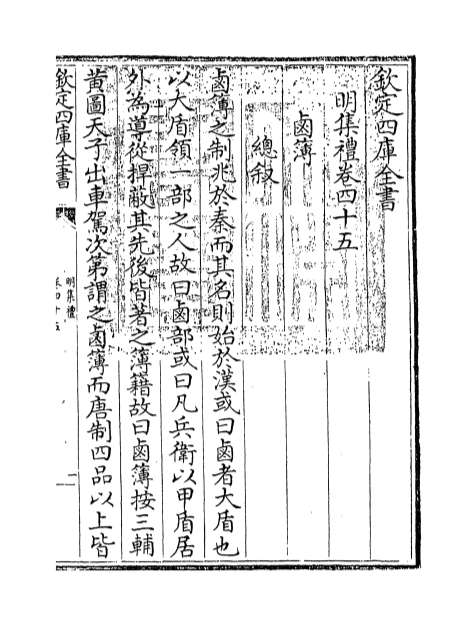 欽定四庫全書
明集禮卷四十五
鹵簿
總叙
鹵簿之制兆於秦而其名則始於漢或曰鹵者大盾也
以大盾領一部之人故曰鹵部或曰凡兵衛以甲盾居
外為導從捍蔽其先後皆著之簿籍故曰鹵簿按三輔
黄圖天子出車駕次第謂之鹵簿而唐制四品以上皆
欽定四庫全書
明集禮
卷四十五
一